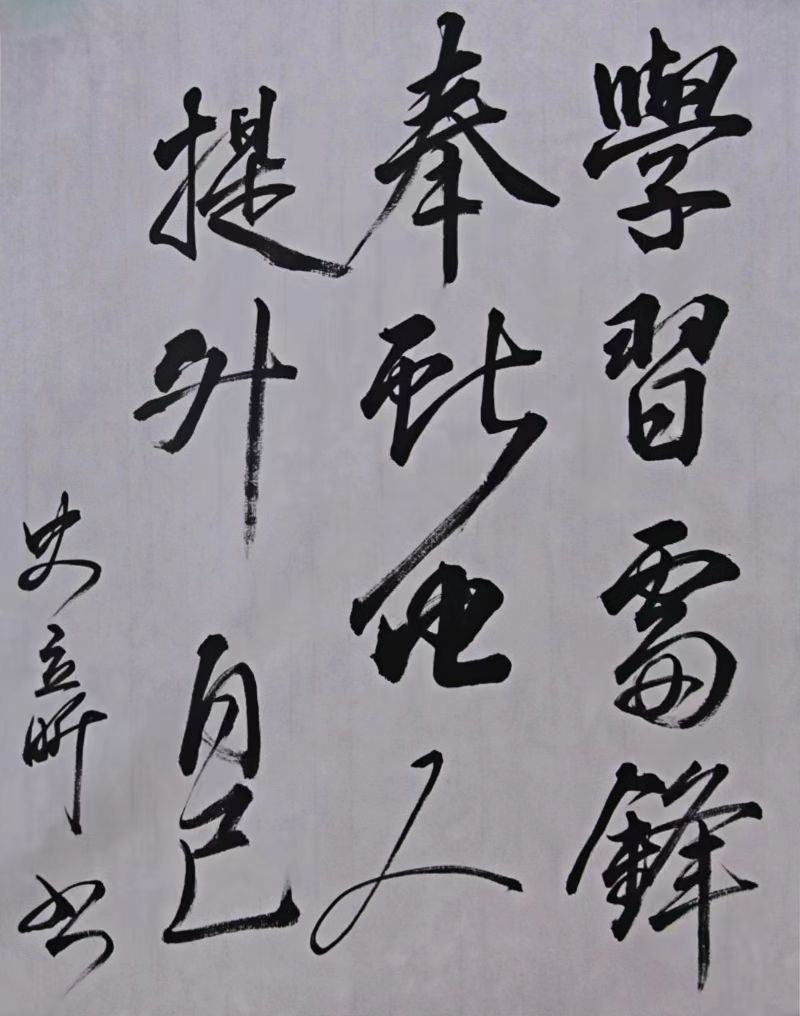 學習雷鋒
奉献他人
提升自己
史立昕书